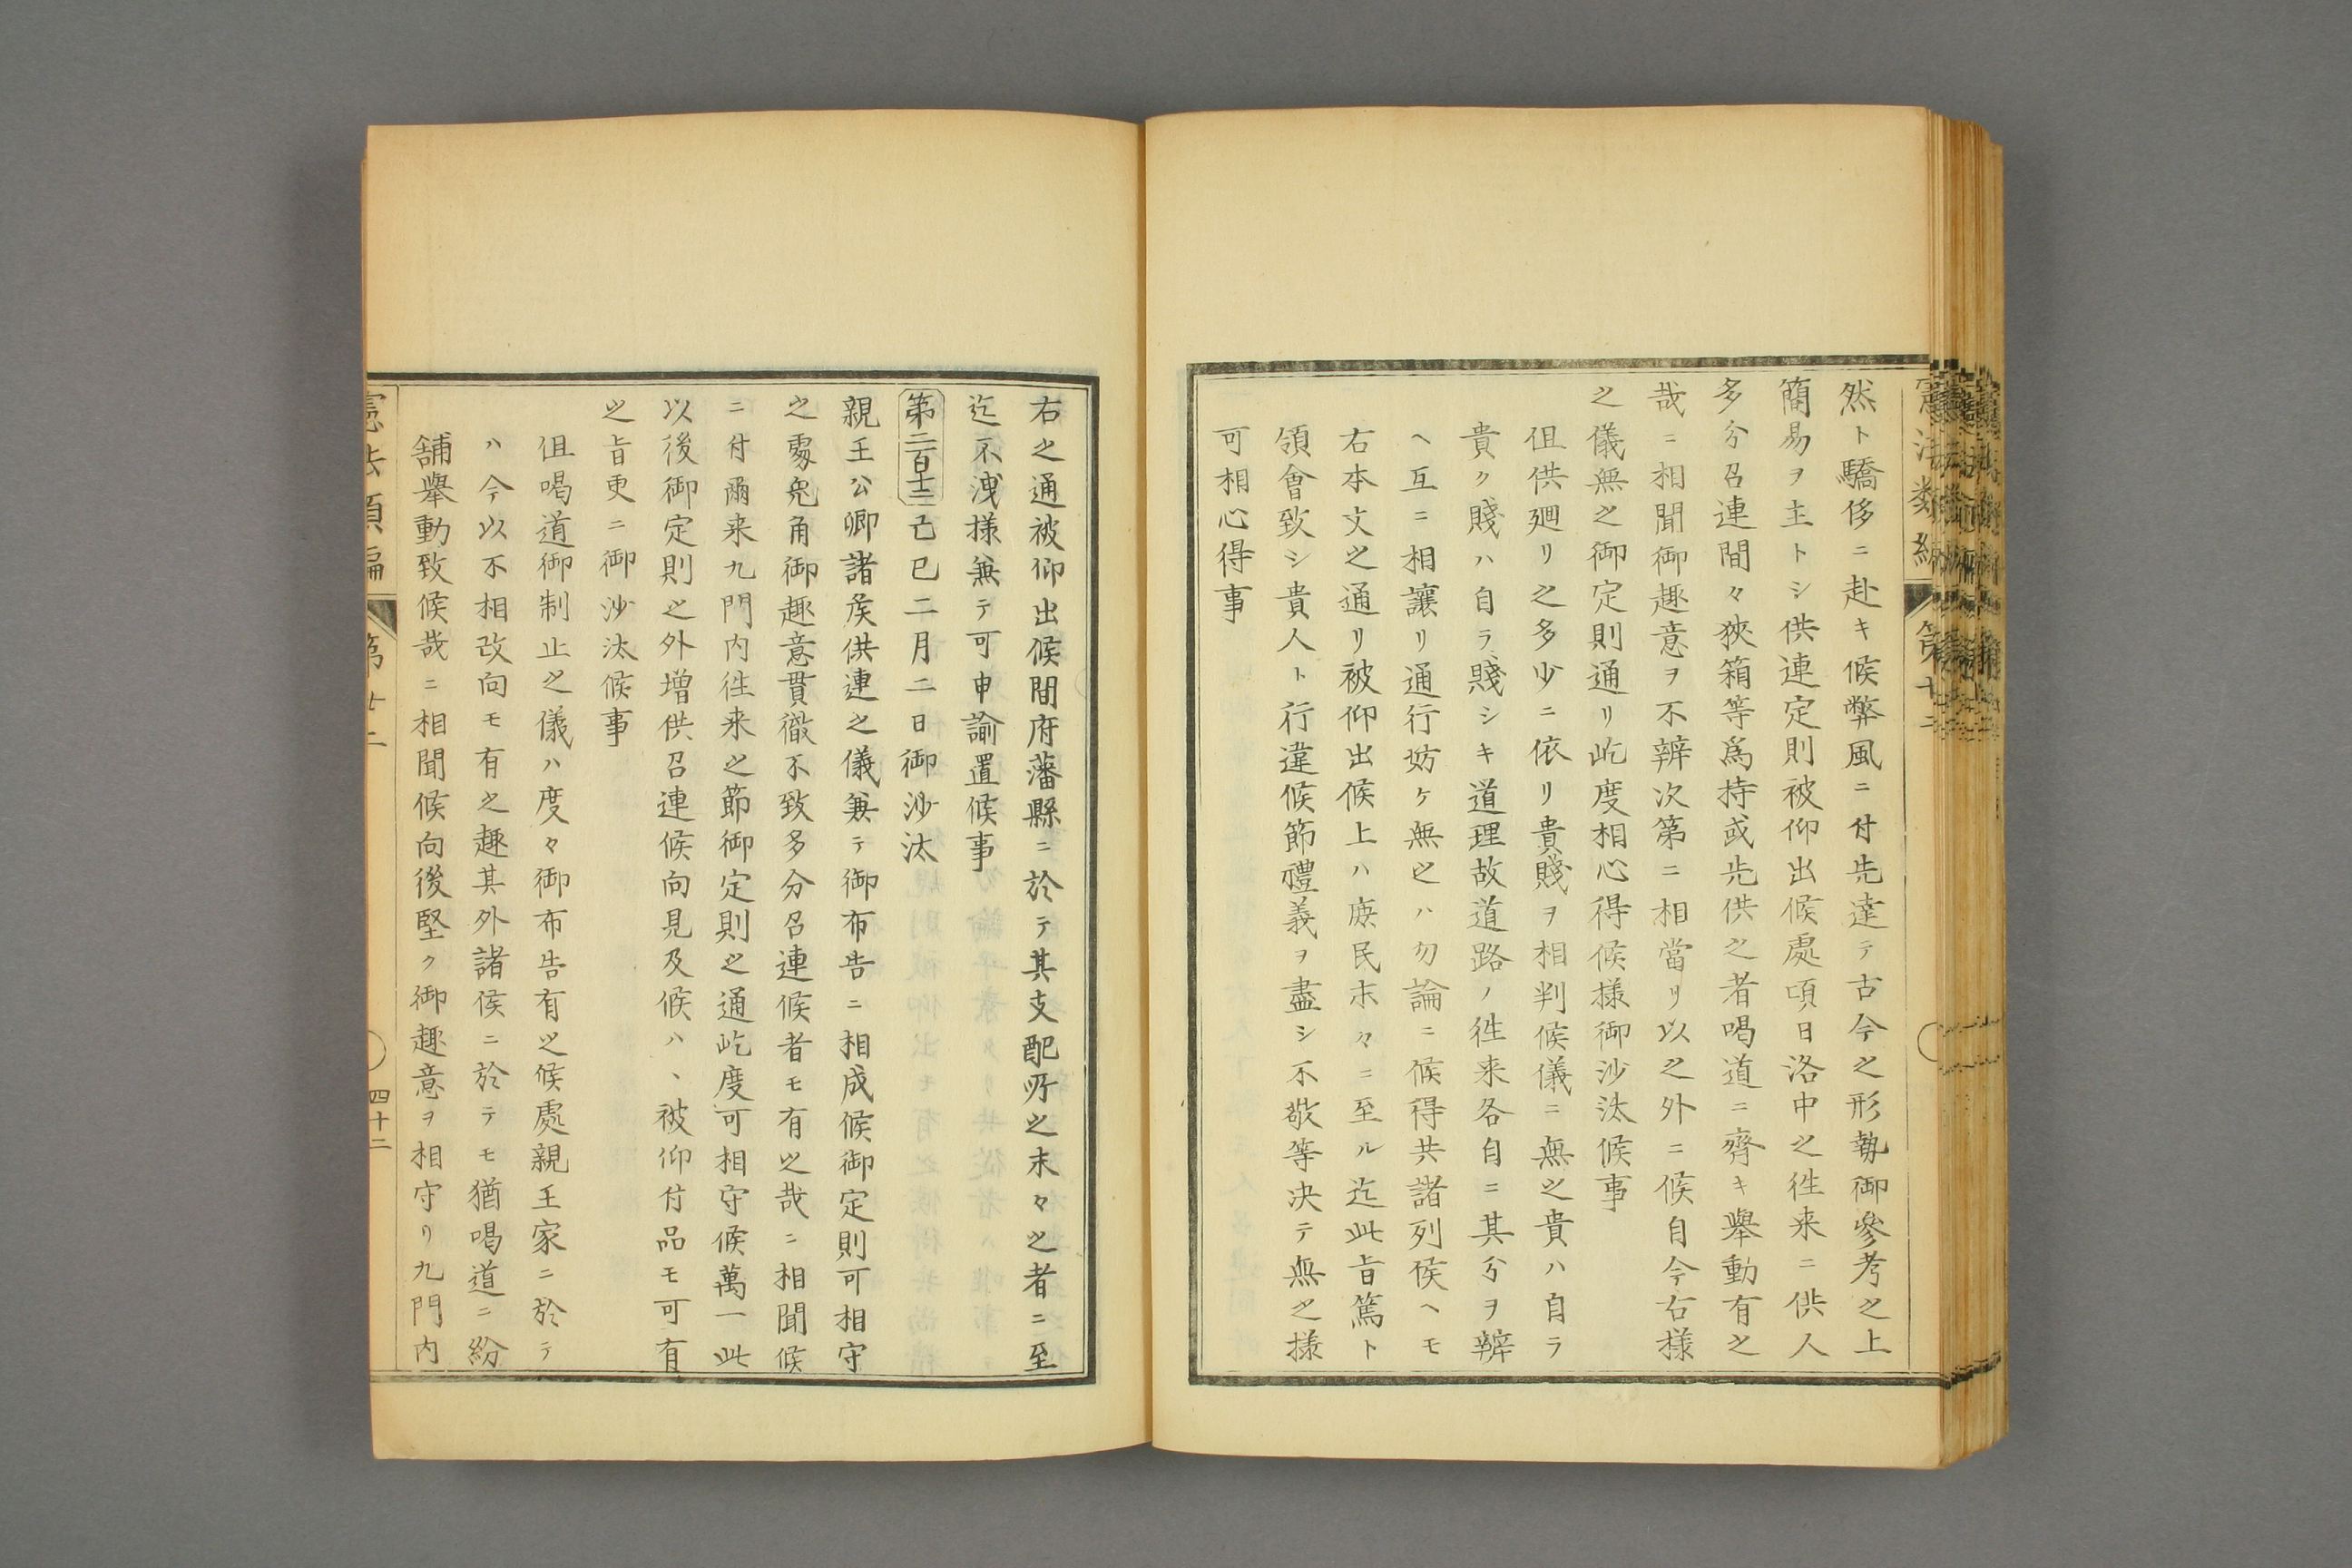 然ト驕侈ニ赴キ候弊風ニ付先達テ古今之形勢御參考之上
簡易ヲ主トシ供連定則被仰出候處頃日洛中之徃来ニ供人
多分召連間々狹箱等爲持或先供之者喝道ニ齊キ擧動有之
哉ニ相聞御趣意ヲ不辨次第ニ相當リ以之外ニ候自今右樣
之儀無之御定則通リ屹度相心得候樣御沙汰候事
但供廻リ之多少ニ依リ貴賤ヲ相判候儀ニ無之貴ハ自ラ
貴ク賤ハ自ラ賤シキ道理故道路ノ徃来各自ニ其分ヲ辨
ヘ互ニ相讓リ通行妨ケ無之ハ勿論ニ候得共諸列侯ヘモ
右本文之通リ被仰出候上ハ庶民末々ニ至ル迄此旨篤ト
領會致シ貴人ト行違候節禮義ヲ盡シ不敬等決テ無之樣
可相心得事
右之通被仰出候間府藩縣ニ於テ其支配所之末々之者ニ至
迄不洩樣無テ可申諭置候事
第二百十三 己巳二月二日御沙汰
親王公卿諸侯供連之儀兼テ御布告ニ相成候御定則可相守
之處兔角御趣意貫徹不致多分召連候者モ有之哉ニ相聞候
ニ付爾来九門内徃来之節御定則之通屹度可相守候萬一此
以後御定則之外增供召連候向見及候ハヽ被仰付品モ可有
之旨更ニ御沙汰候事
但喝道御制止之儀ハ度々御布告有之候處親王家ニ於テ
ハ今以不相改向モ有之趣其外諸侯ニ於テモ猶喝道ニ紛
舗擧動致候哉ニ相聞候向後堅ク御趣意ヲ相守リ九門内
憲法類編 第廿二
四十二